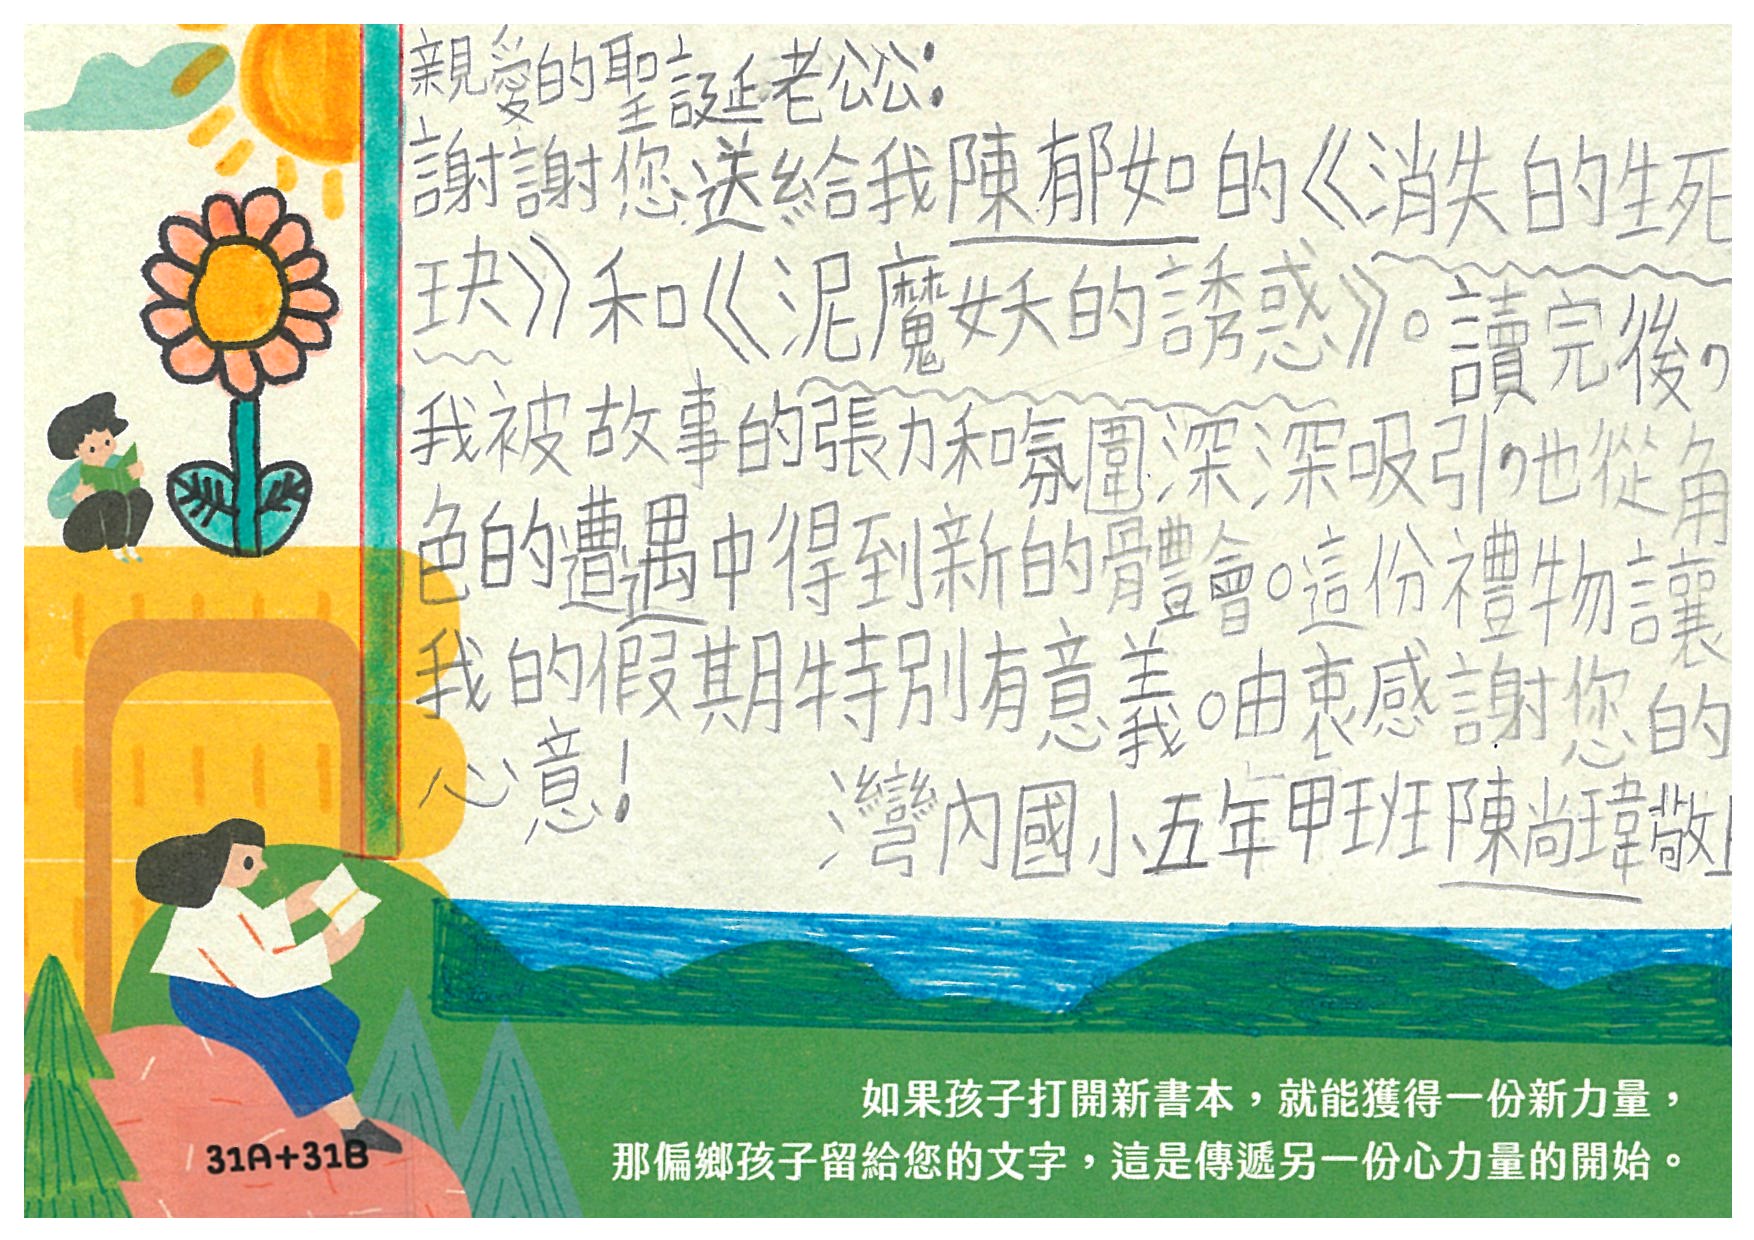 親愛的聖誕老公公:
謝謝您送給我陳郁如的《消失的生死
玦》和《泥魔妖的誘惑》。讀完後,
我被故事的張力和氛圍深深吸引,也從角
色的遭遇中得到新的體會。這份禮物讓
我的假期特別有意義。由衷感謝您的
心意!
灣內國小五年甲班陳尚瑋敬上
如果孩子打開新書本,就能獲得一份新力量,
那偏鄉孩子留給您的文字,這是傳遞另一份心力量的開始。
31A+31B